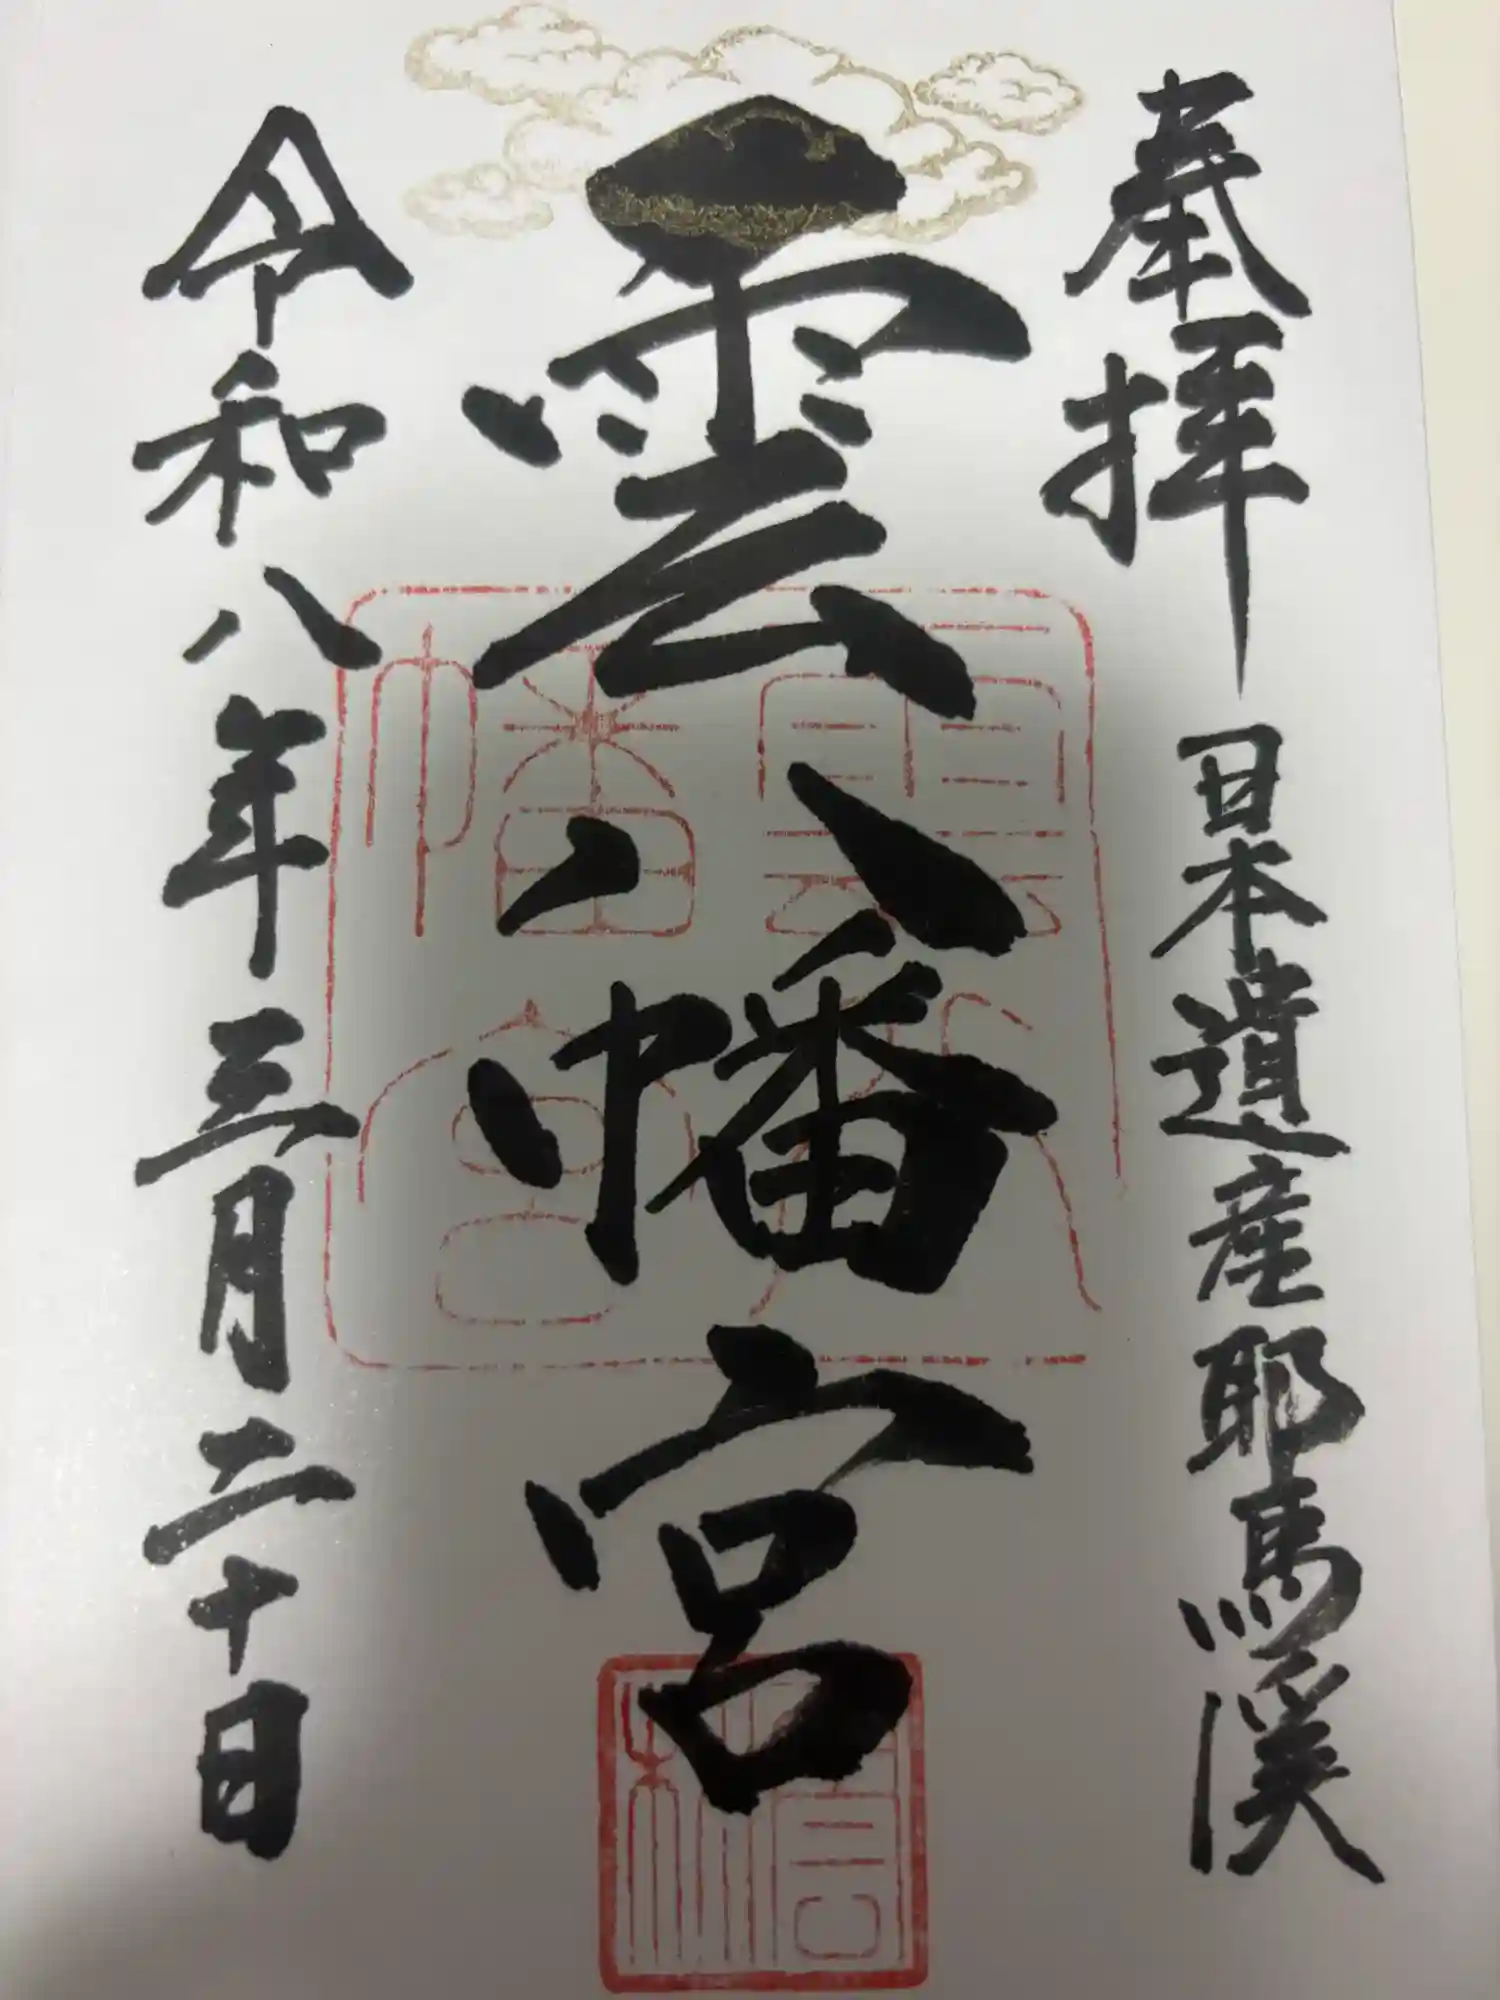 奉拝 日本遺産耶馬溪
雲八幡宮
令和八年三月二十日
雲八幡宮